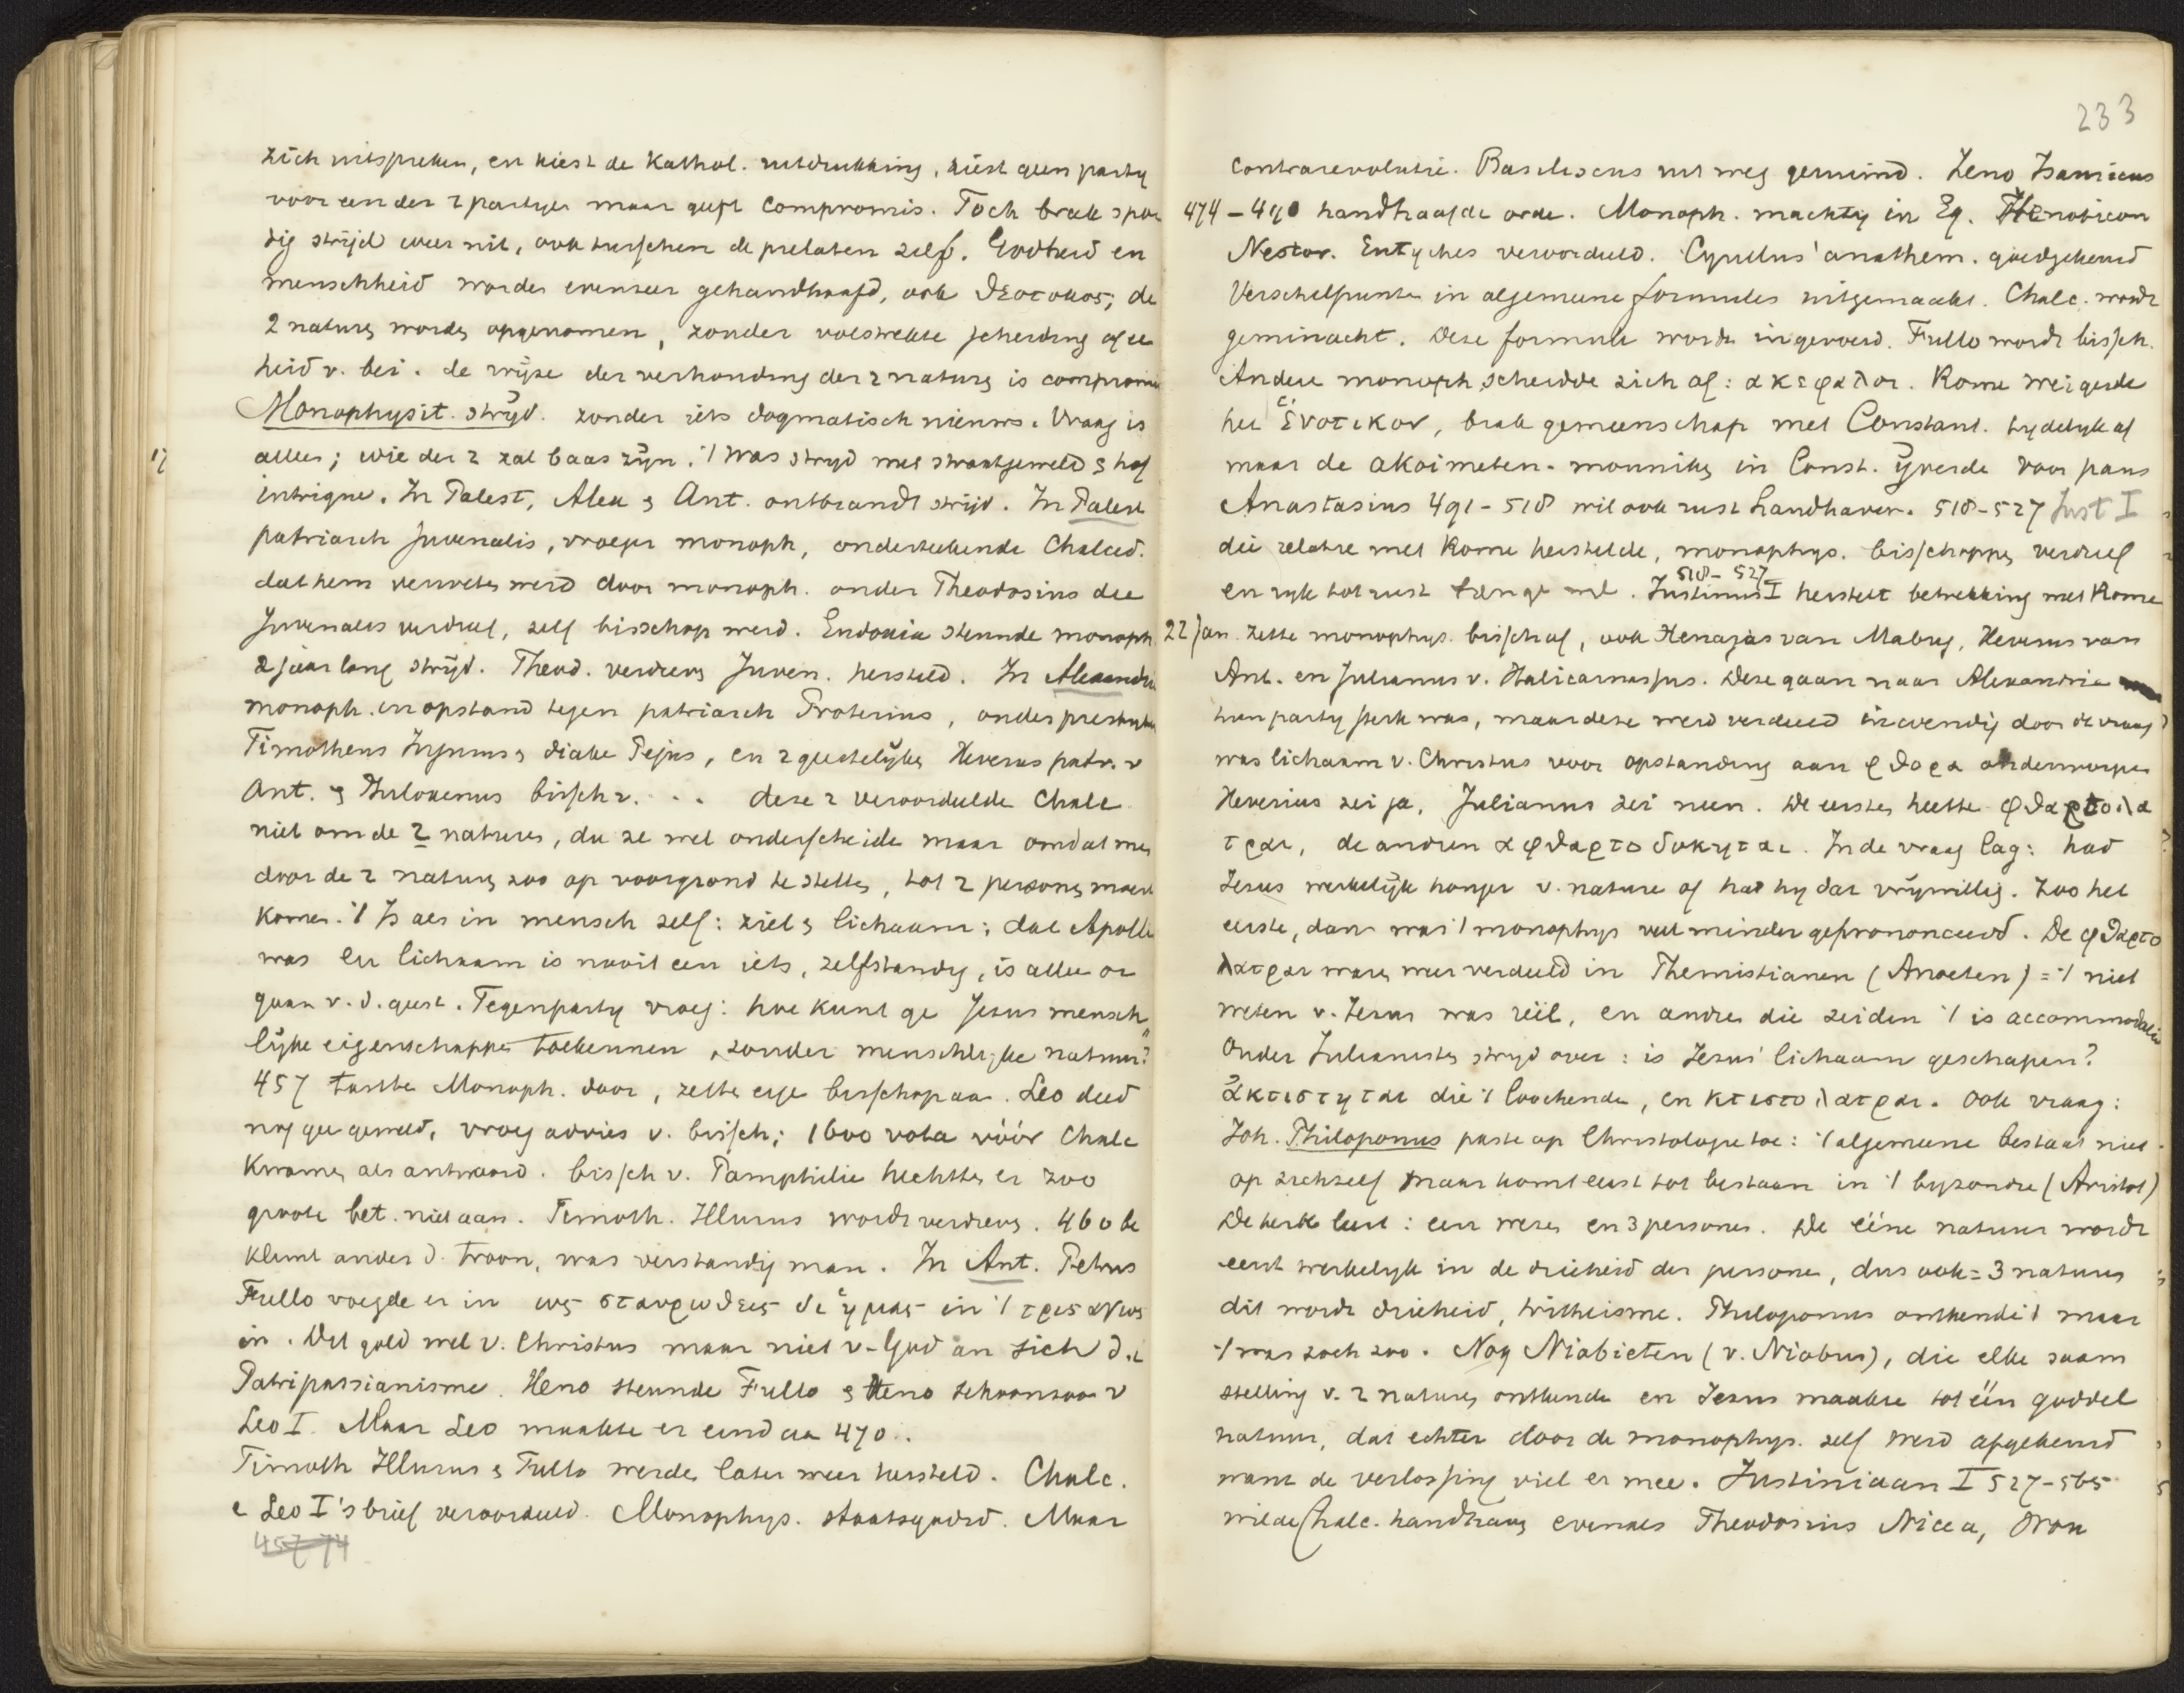 zich uitspreken, en kiest de Kathol. uitdrukking, kiest geen party
voor een der 2 partyen maar geeft compromis. Toch brak spoe
dig strijd weer uit, ook tusschen de prelaten zelf. Godheid en
menschheid worden evenzeer gehandhaafd, ook ϑεοτοκος; de
2 naturen worden opgenomen, zonder volstrekte scheiding of een
heid v. bei. de wijze der verhouding der 2 naturen is compromis
Monophysit. strijd. zonder iets dogmatisch nieuws. Vraag is
17
alleen; wie der 2 zal baas zijn. 't Was stryd met staatsgeweld & hof
intrigue. In Palest, Alex & Ant. ontbrandt strijd. In Palest
patriarch Juvenalis, vroeger monoph, onderteekende Chalced.
dat hem verweten werd door monoph. onder Theodosius die
Juvenalis verdreef, zelf bisschop werd. Eudoxia steunde monoph.
2 jaar lang strijd. Theod. verdreven Juven. hersteld. In Alexandrie
monoph. in opstand tegen patriarch Proterius, onder presbyter
Timotheus & diake, en 2 geestelijken Xeverus patr. v
Ant. & Philoxenus bissch v. . . deze 2 veroordeelde Chalc
niet om de 2 naturen, die ze wel onderscheide maar omdat men
door de 2 naturen zoo op voorgrond te stellen, tot 2 personen moest
komen. 't Is als in mensch zelf: ziel & lichaam; dat Apolli
was en lichaam is nooit een iets, zelfstandig, is alleen or
gaan v. d. geest. Tegenparty vroeg: hoe kunt ge Jesus mensch
lijke eigenschappen toekennen, zonder menschlijke natuur?"
457 tastte Monoph. door, zette eige bisschop aan. Leo deed
nog gee geweld, vroeg advies v. bissch; 1600 vota vóór Chalc
kwamen als antwoord. bissch v. Pamphilie hechtte er zoo
groote bet. niet aan. Timoth. Illurus wordt verdreven. 460 be
klimt ander d. troon, was verstandig man. In Ant. Petrus
Fullo voegde er in ως σταυρωϑεις δι ἡμας in 't τρισαγιως
in. Dit gold wel v. Christus maar niet v. God an sich d.i
Patripassianisme. Xeno steunde Fullo & Xeno schoonzoon v
Leo I. Maar Leo maakte er eind aan 470..
Timoth Illurus & Fullo werden later weer hersteld. Chalc.
e Leo I's brief veroordeeld. Monophys. staatsgodsd. Maar
457-74
233
contrarevolutie. Basiliscus uit weg geruimd. Zeno Isauricus
474-490 handhaafde orde. Monoph. machtig in Eg. Henoticon
Nestor. Eutyches veroordeeld. Cyrillus' anathem. goedgekeurd
Verschilpunten in algemeene formules uitgemaakt. Chalc. wordt
geminacht. Deze formule wordt ingevoerd. Fullo wordt bissch.
Andere monoph scheidde zich af: ακεφαλοι. Rome weigerde
het ἑνοτικον, brak gemeenschap met Constant. tydelyk af
maar de akoimeten-monniken in Const. yverde voor paus
Anastasius 491-518 wil ook rust handhaven. 518-527 Just I
die relatie met Rome herstelde, monophys. bisschoppen verdreef
518-527
en ryk tot rust brengt wel. Justinus I herstelt betrekking met Rome
22 jan. zette monophys. bissch af, ook Xenajas van Mabug, Xeverus van
Ant. en Julianus v. Halicarnassus. Deze gaan naar Alexandrie
hun party sterk was, maar deze werd verdeeld inwendig door de vraag
was lichaam v. Christus voor opstanding aan φϑορα onderworpen
Xeverius zei ja, Julianus zei neen. De eersten heette φϑαρτολα
τραι, de andren αφϑαρτοδοκηται. In de vraag lag: had
Jesus werkelijk honger v. nature of had hy dat vrywillig. Zoo het
eerste, dan was 't monophys veel minder geprononceerd. De φϑαρτο
λατραι ware weer verdeeld in Themistianen (Anoeten) = 't niet
weten v. Jezus was reëel, en andre die zeiden 't is accommodatie
Onder Julianisten stryd over: is Jezus' lichaam geschapen?
ἀκτιστηται die 't loochende, en κτιστολατραι. Ook vraag:
Joh. Philoponus paste op Christologie toe: 't algemeene bestaat niet
op zichzelf maar komt eerst tot bestaan in 't byzondre (Aristot)
De kerk leert: een wezen en 3 personen. De ééne natuur wordt
eerst werkelyk in de drieheid der persone, dus ook = 3 naturen
dit wordt drieheid, tritheisme. Philoponus ontkende 't maar
't was toch zoo. Nog Niobieten (v. Niobus), die elke saam
stelling v. 2 naturen ontkende en Jezus maakte tot één goddel
natuur, dat echter door de monophys. zelf werd afgekeurd
want de verlossing viel er mee. Justiniaan I 527-565
wilde Chalc. handhaven evenals Theodosius Nicea, Oron